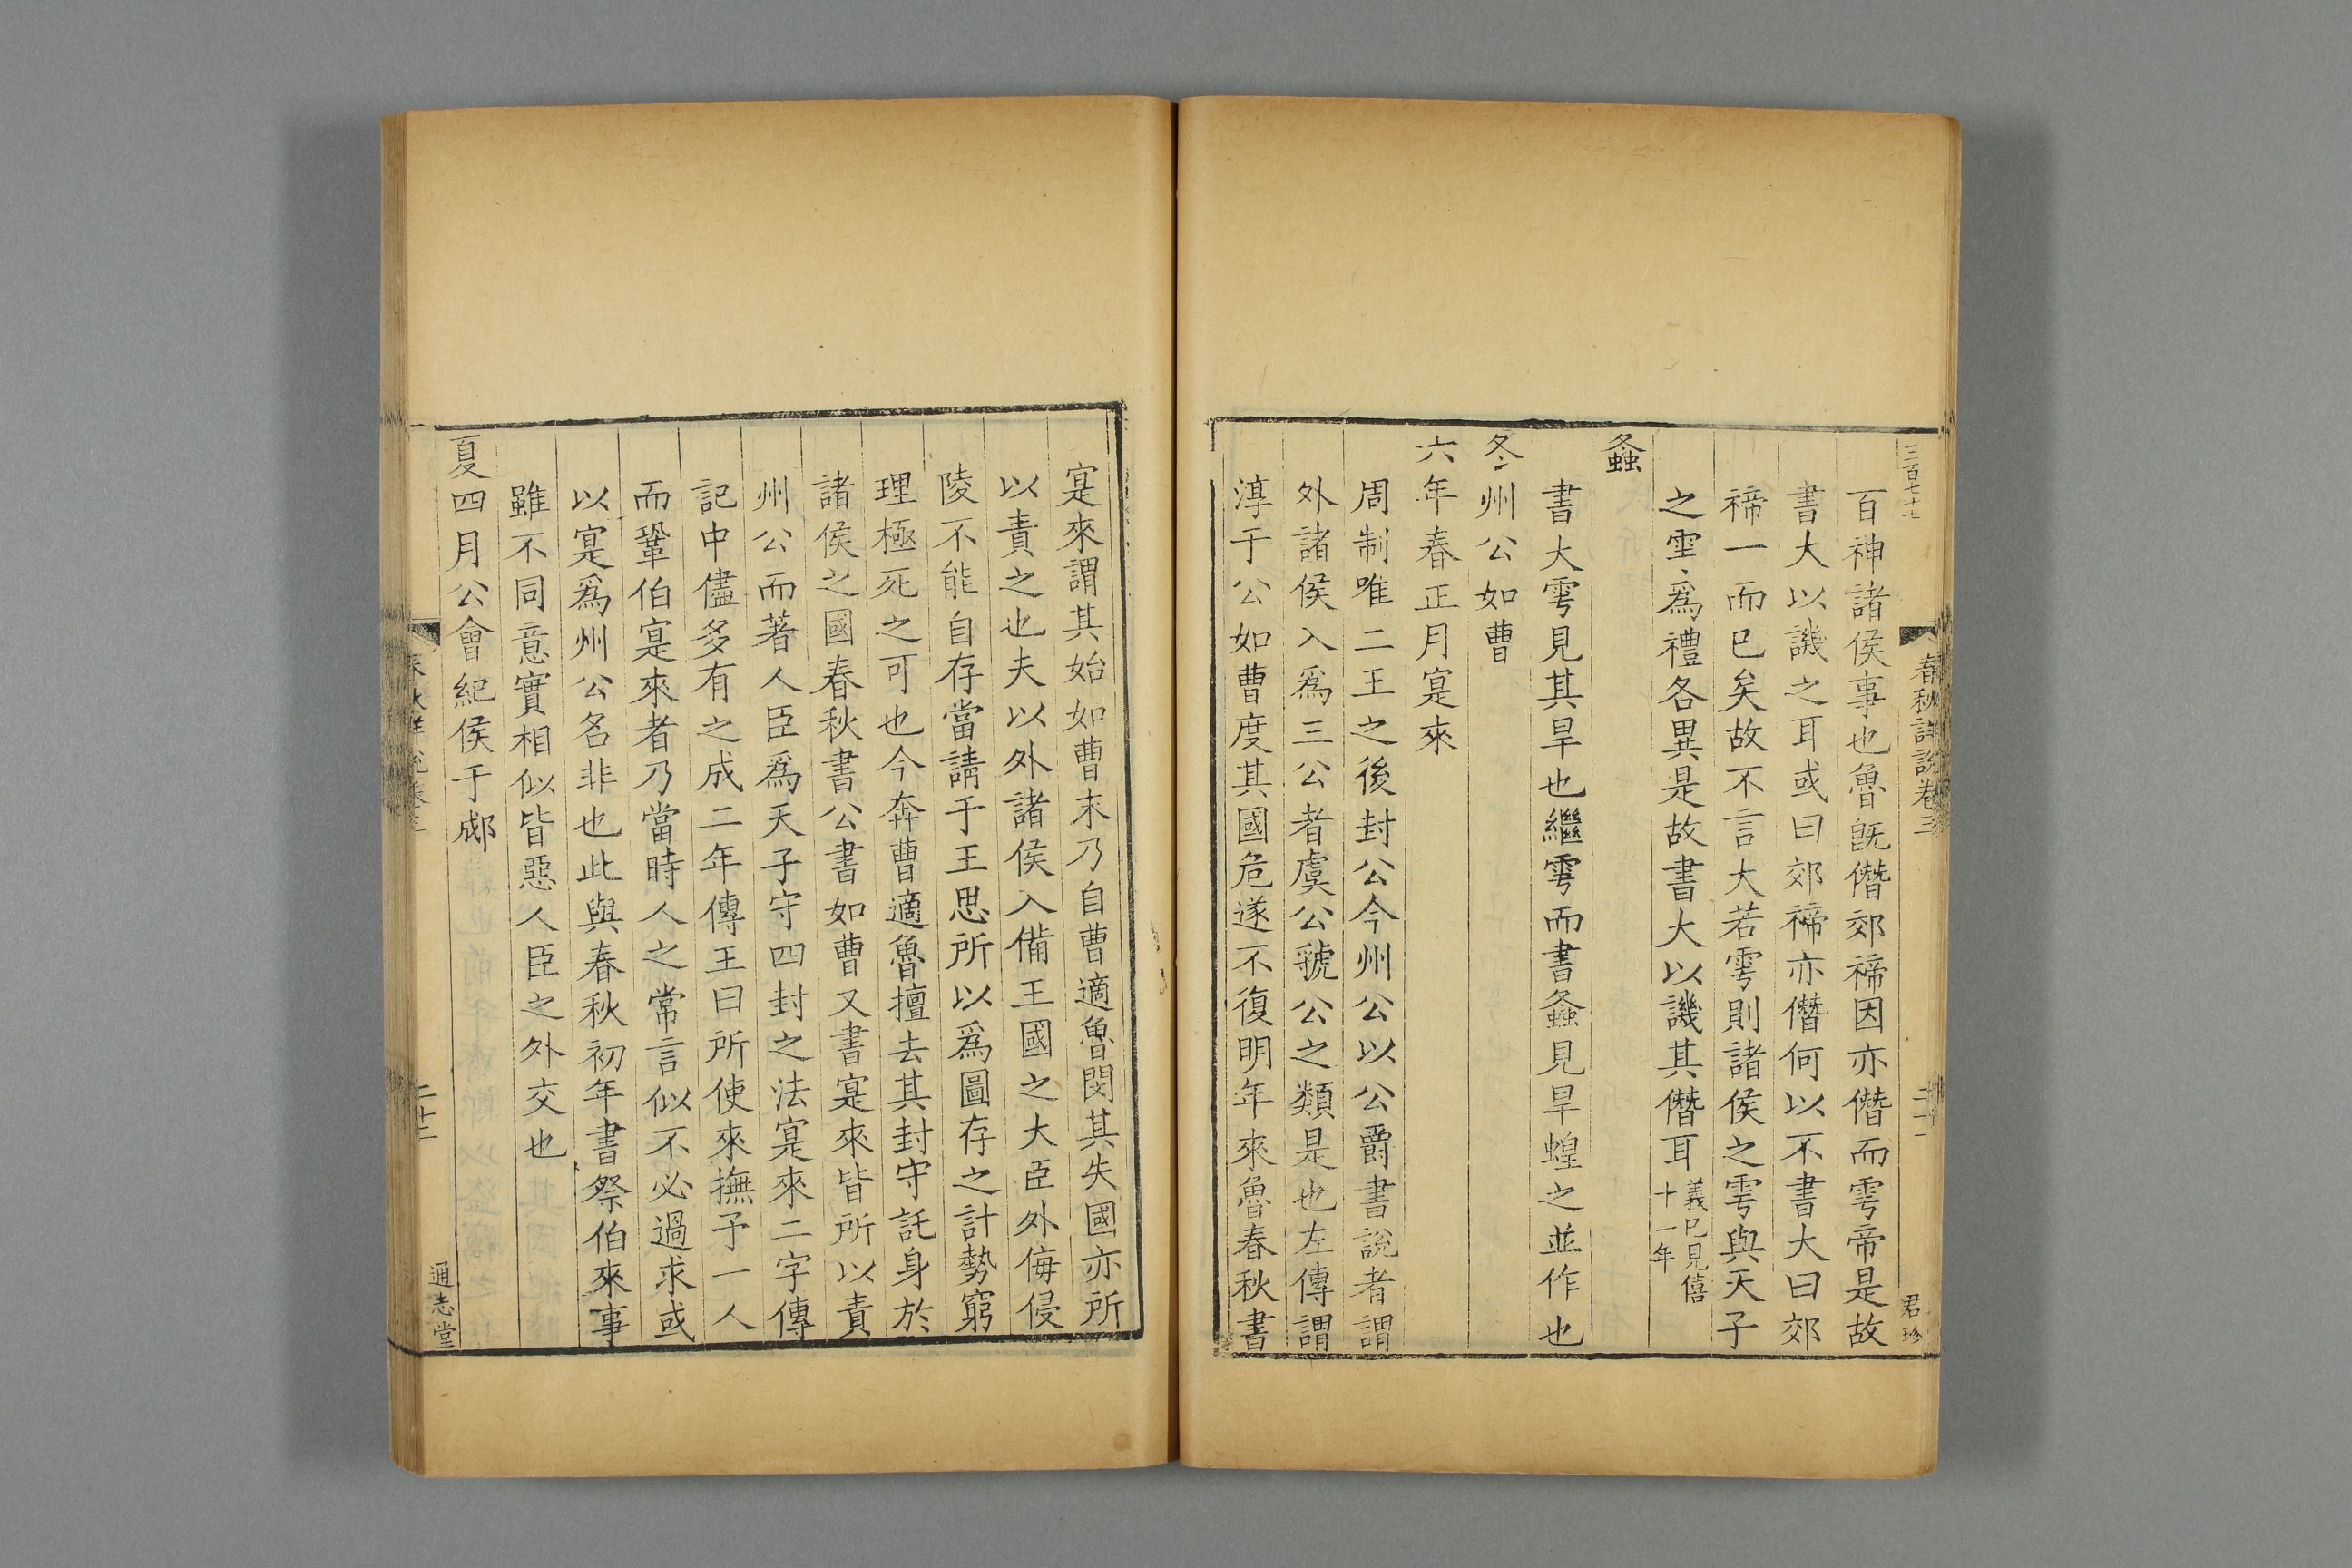 三百七十七
春秋詳說卷三
二十一
君珍
百神諸侯事也魯旣僭郊禘因亦僭而雩帝是故
書大以譏之耳或曰郊禘亦僭何以不書大曰郊
禘一而已矣故不言大若雩則諸侯之雩與天子
之雩爲禮各異是故書大以譏其僭耳義已見僖十一年
螽
書大雩見其旱也繼雩而書螽見旱蝗之並作也
冬州公如曹
六年春正月寔來
周制唯二王之後封公今州公以公爵書說者謂
外諸侯入爲三公者虞公虢公之類是也左傳謂
淳于公如曹度其國危遂不復明年來魯春秋書
寔來謂其始如曹末乃自曹適魯閔其失國亦所
以責之也夫以外諸侯入備王國之大臣外侮侵
陵不能自存當請于王思所以爲圖存之計勢窮
理極死之可也今奔曹適魯擅去其封守託身於
諸侯之國春秋書公書如曹又書寔來皆所以責
州公而著人臣爲天子守四封之法寔來二字傳
記中儘多有之成二年傳王曰所使來撫予一人
而鞏伯寔來者乃當時人之常言似不必過求或
以寔爲州公名非也此與春秋初年書祭伯來事
雖不同意實相似皆惡人臣之外交也
夏四月公會紀侯于郕
二十二
通志堂